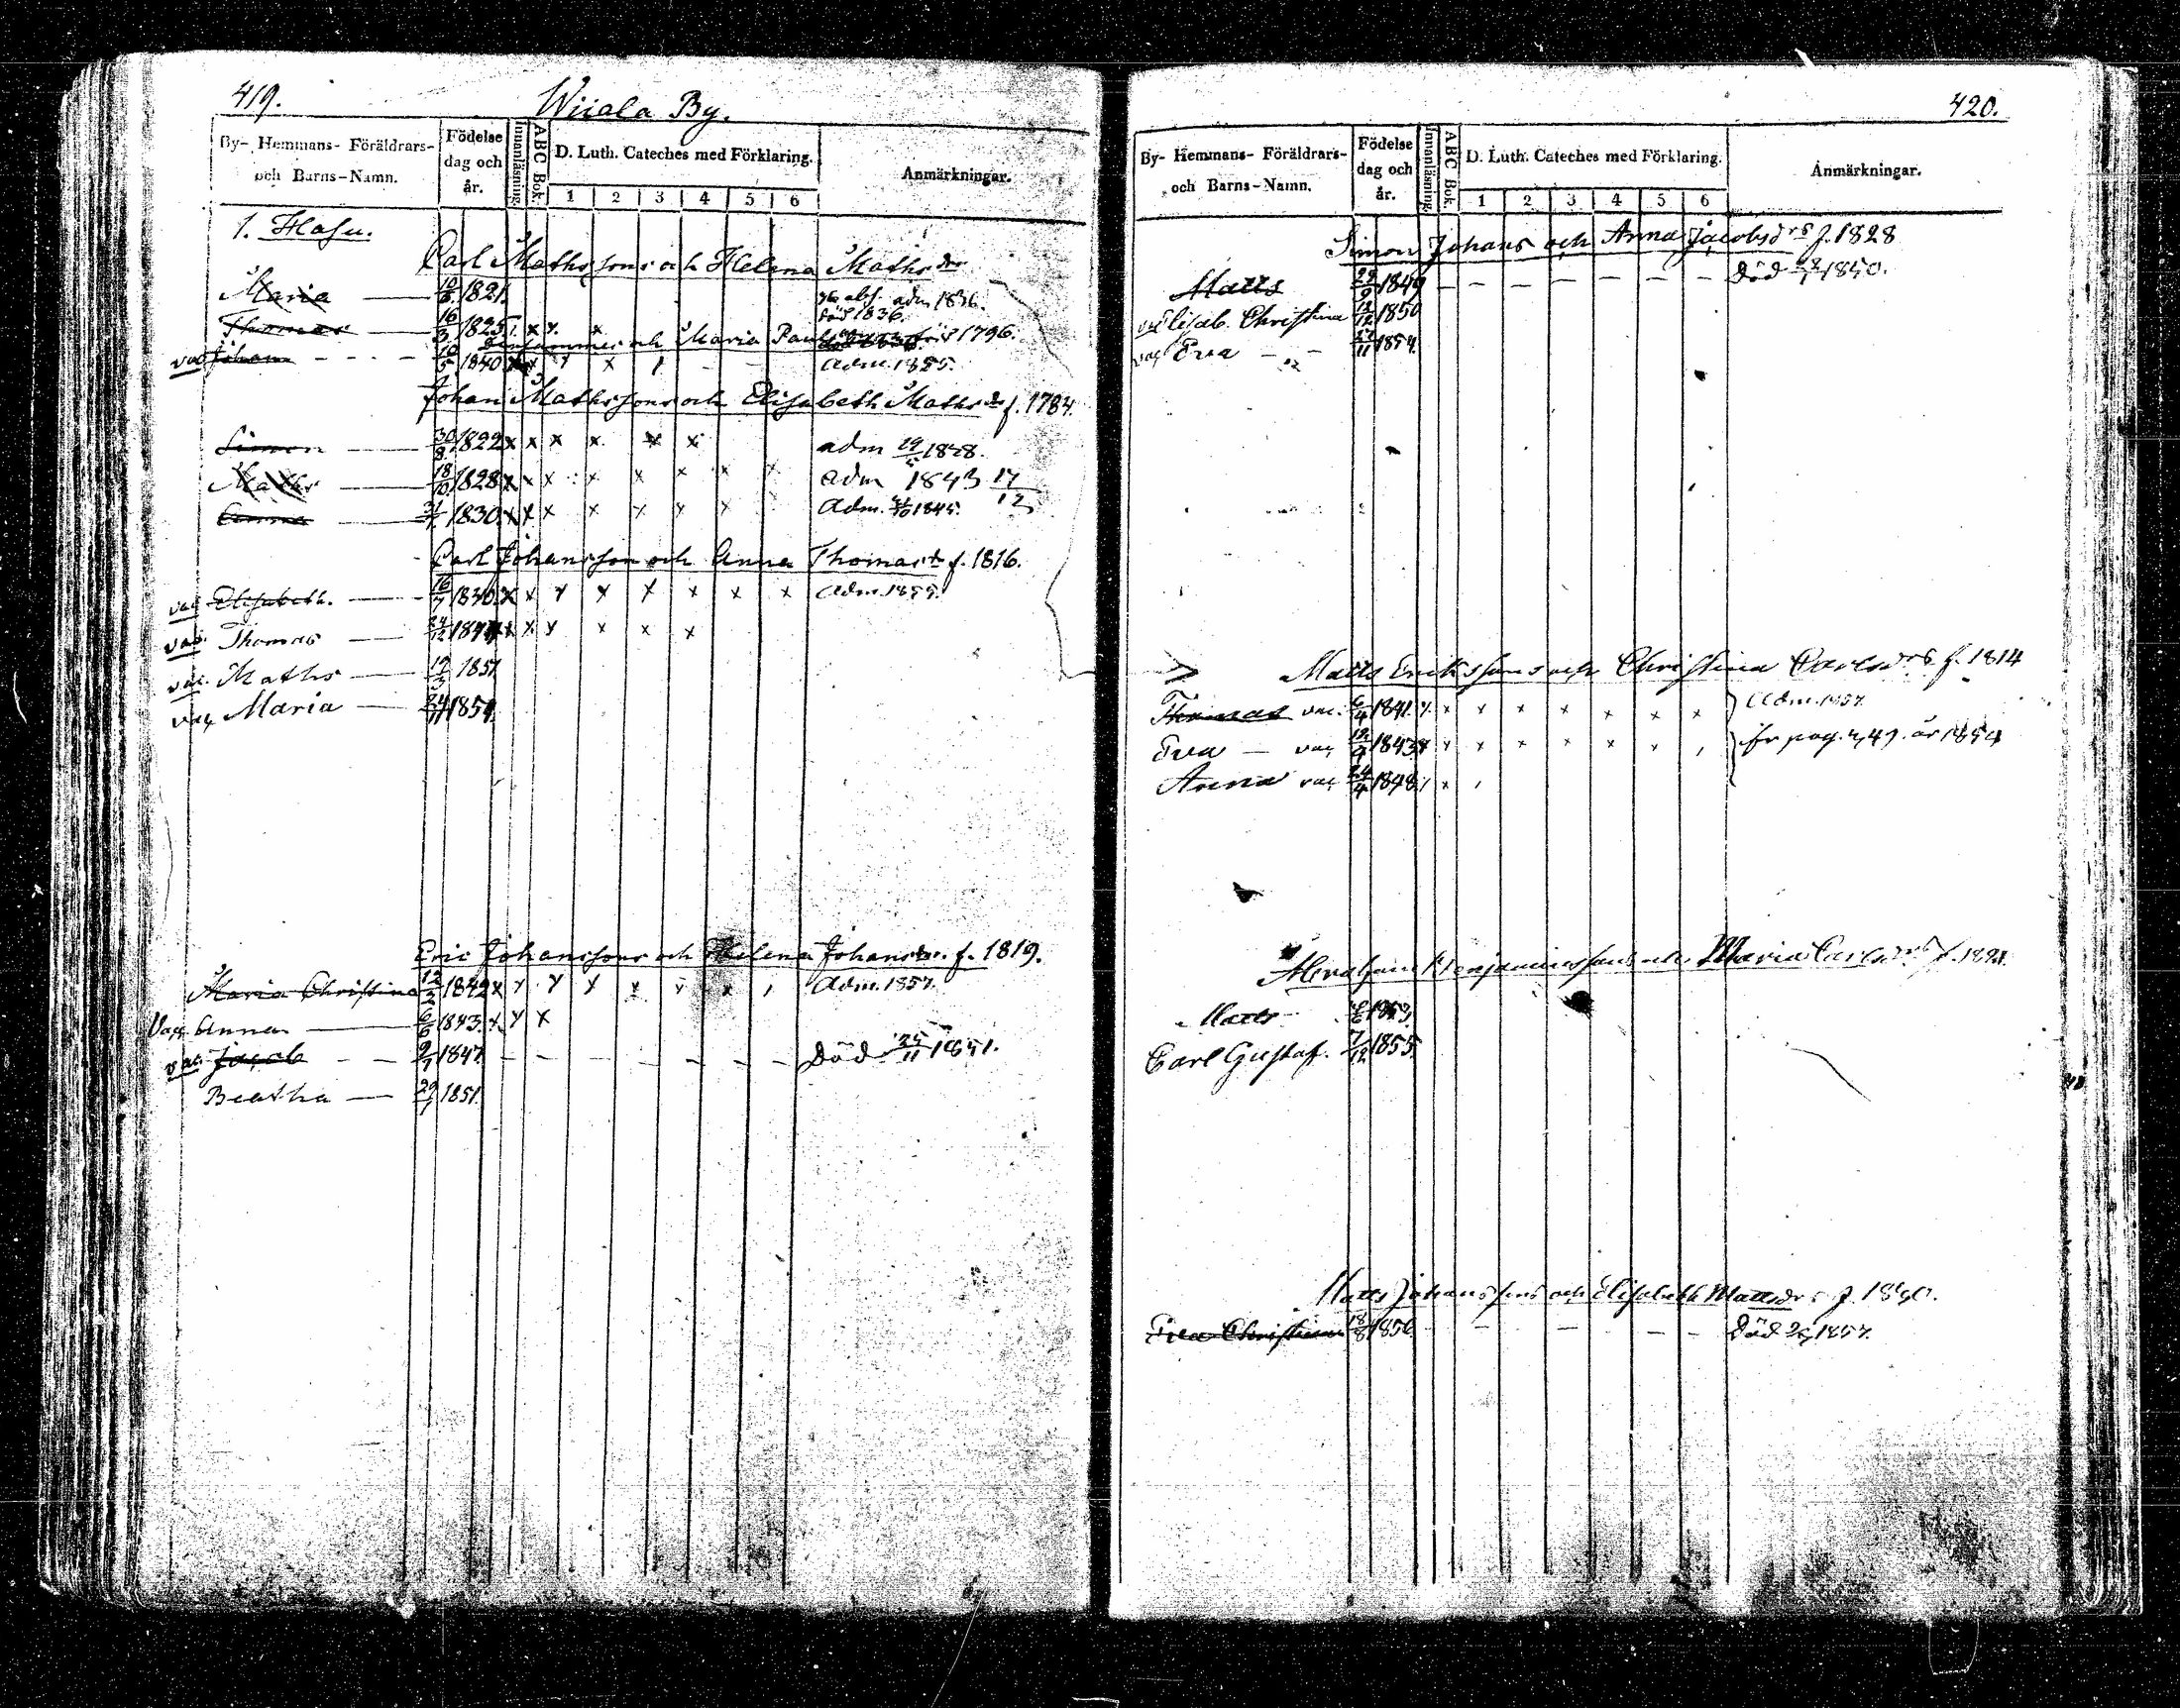 419.
Wiiala By.
By- Hemmans- Föräldrars- och Barns-Namn.
Födelse dag och år.
Innanläsning.
ABC Bok.
D. Luth. Cateches med Förklaring.
1 2 3 4 5 6
Anmärkningar.
1. Hasu.
Carl Mathssons och Helena Mathsdr
Maria — 1821. adm 1836. död 1836.
Thomas — 16/3 1825 x x x
och Maria f. 1796.
vac Johan - - - 10/5 1840 x x x x adm. 1855.
Johan Mathssons och Elisabeth Mathsdr f. 1784.
Simon — 30/8 1822 x x x x x x adm
Maths — 18/10 1828 x x x x x x x x adm 1843
Anna — 1830 x x x x x x x Adm. 1845.
Carl Johansson och Anna Thomasdr f. 1816.
vac Elisabeth. — 16/7 x x x x x x x x Adm.
vac. Thomas — 24/12 x x x x x x
vac. Maths — 1851
vac Maria — 24/11 1854.
Eric Johanssons och Helena Johansdr. f. 1819.
Maria Christina 12/2 1842 x x x x x x x Adm. 1857.
Vac. Anna — 6/6 1843. x x x
vac. Jacob - - 9/7 1847. - - - - - - - Död 25/11 1851.
Beatha — 29/1 1851.
420.
By- Hemmans- Föräldrars- och Barns-Namn.
Födelse dag och år.
Innanläsning.
ABC Bok.
D. Luth. Cateches med Förklaring.
1 2 3 4 5 6
Anmärkningar.
Simon Johans och Anna Jacobsdrs f. 1828
Matts 22/9 1849 - - - - - - - Död 1850.
vac Elisab. Christina 12/12 1850
vac Eva - - 1854.
Matts Erikssons och Christina Carlsdrs. f. 1814
Thomas vac. 6/4 1841. x x x x x x x Adm. 1857.
Eva — vac 1843 x x x x x x fr pag. år 1854
Anna vac 24/4 1848 x
Abraham Benjaminssons och Maria Carlsdrs f.
Matts
Carl Gustaf. 7/12 1855.
Matts Johanssons och Elisabeth Mattsdrs f.
Eva Christina 18/8 1856 - - - - - Död 1857.